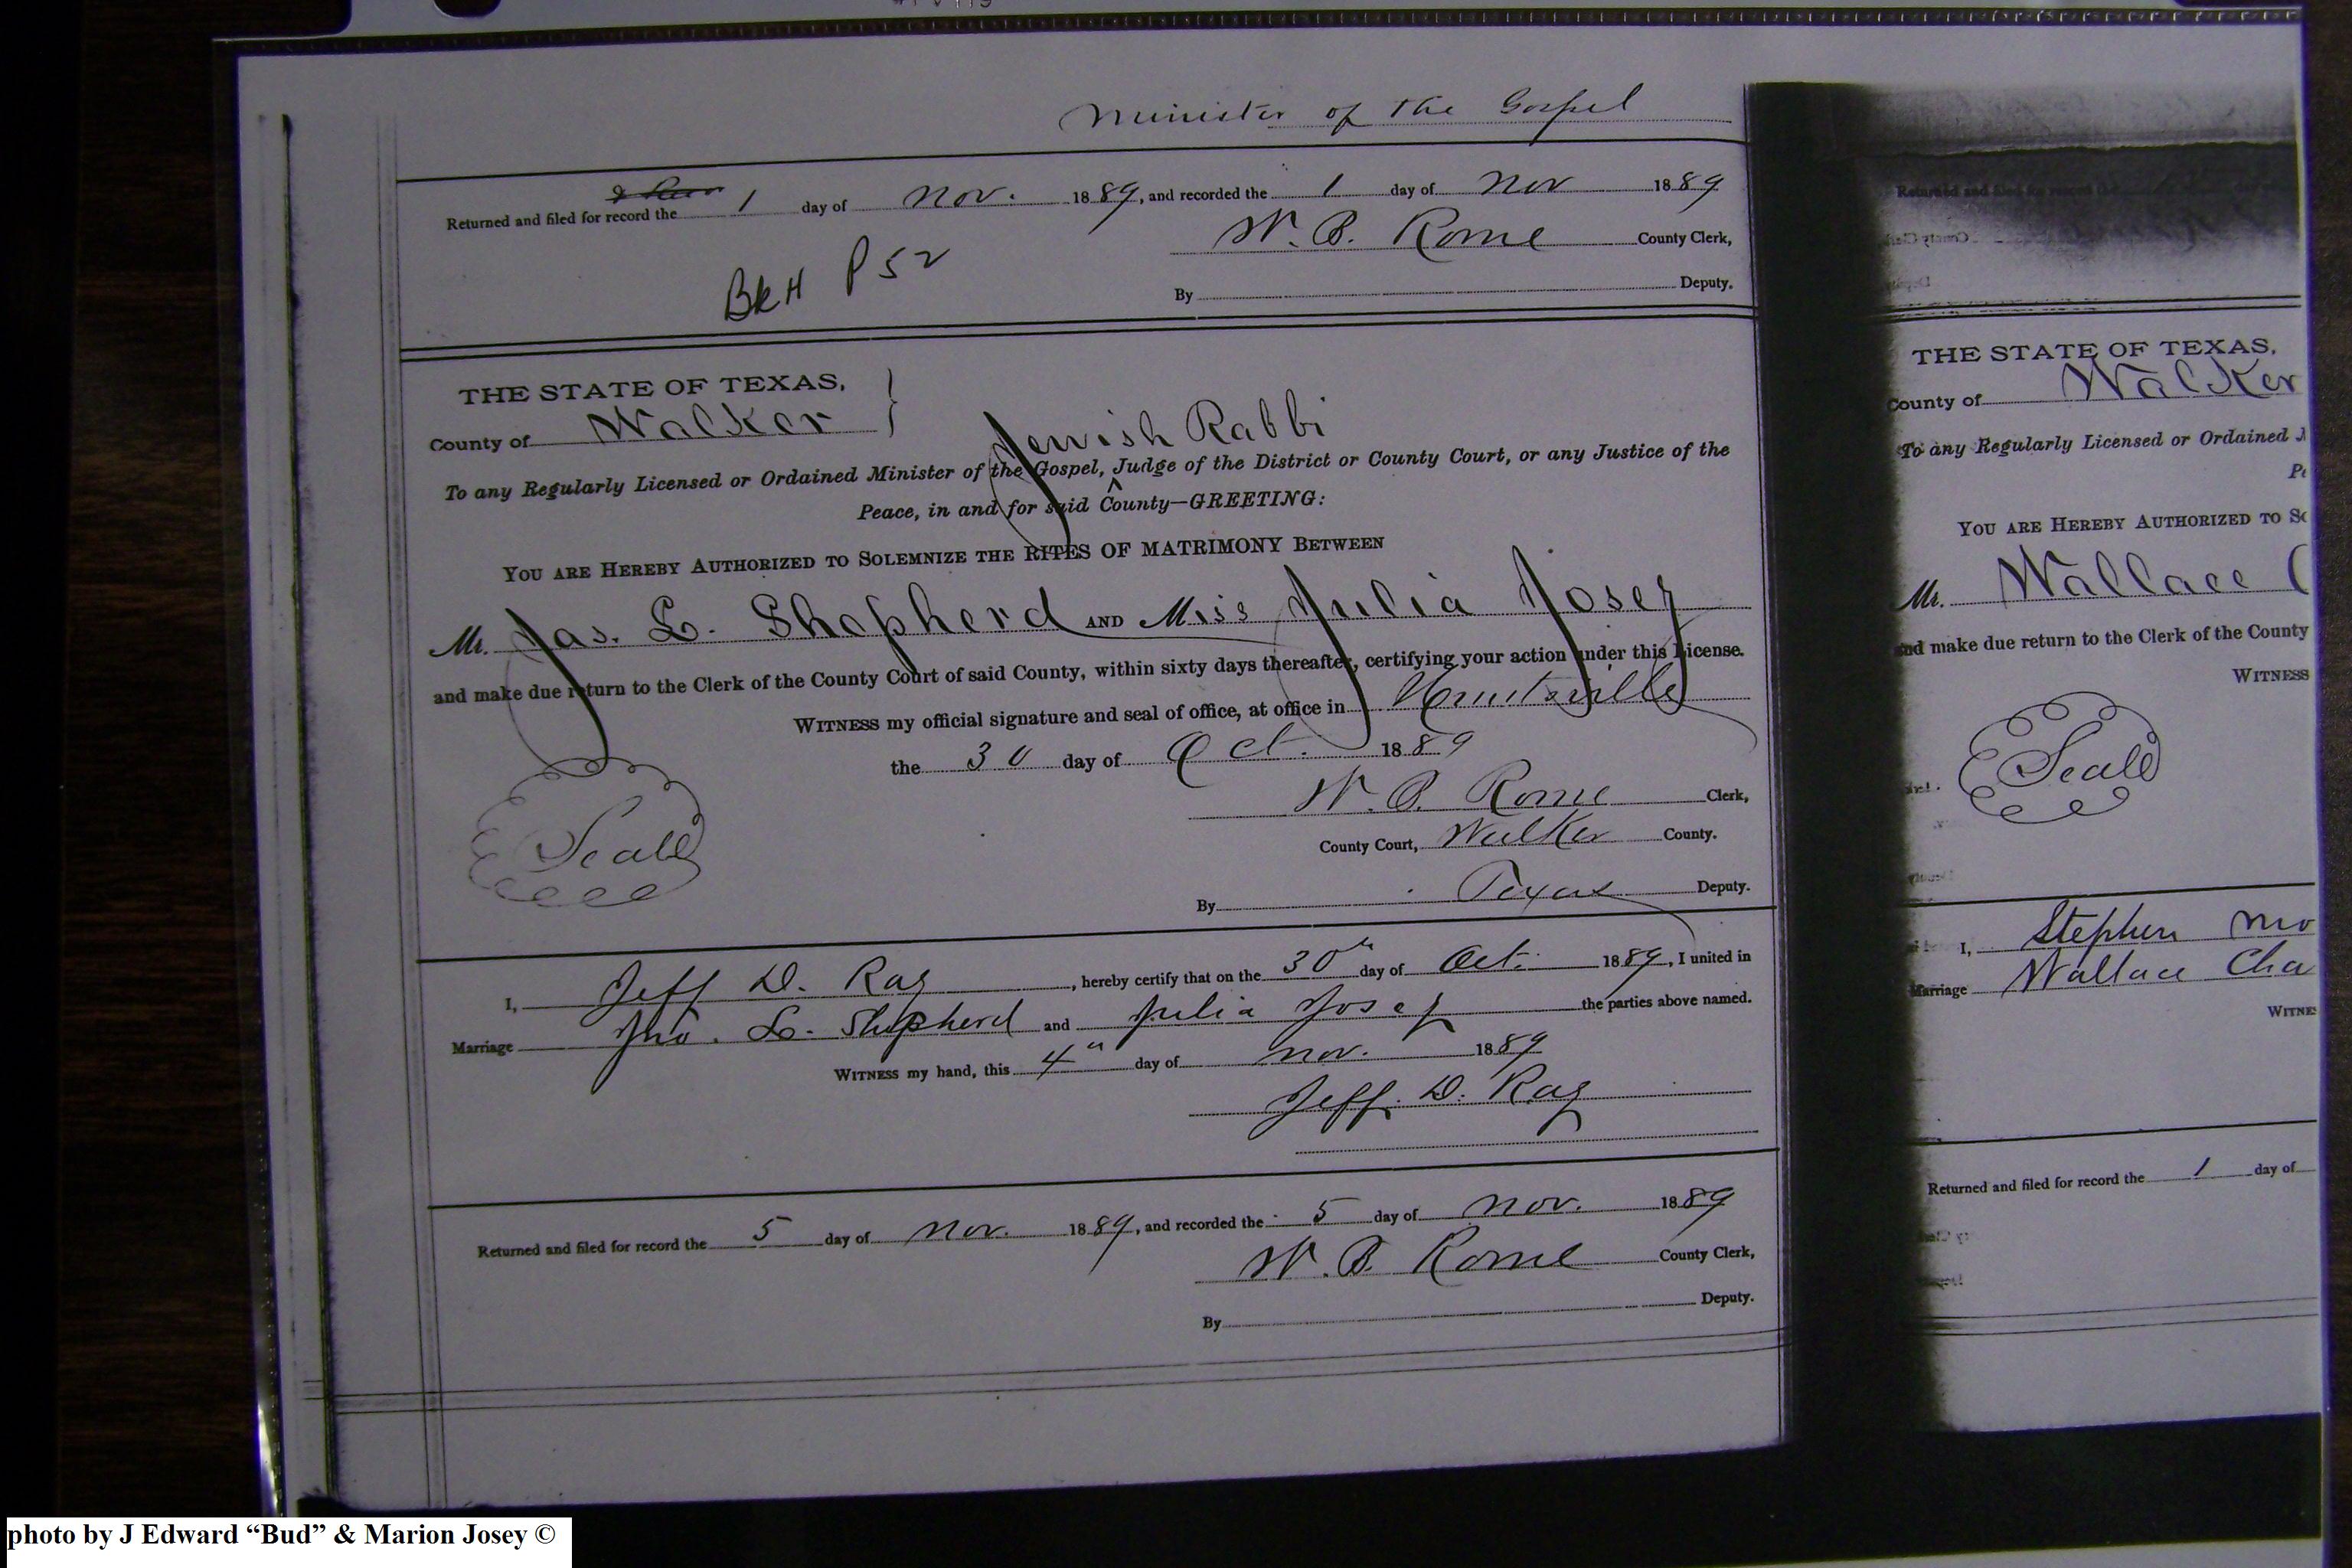 Minister of the Gospel
Returned and filed for record the 1 day of Nov. 1889, and recorded the 1 day of Nov 1889
W. B. Rome County Clerk,
BkH P 52
By Deputy.
THE STATE OF TEXAS,
County of Walker
Jewish Rabbi
To any Regularly Licensed or Ordained Minister of the Gospel, ^ Judge of the District or County Court, or any Justice of the
Peace, in and for said County—GREETING:
YOU ARE HEREBY AUTHORIZED TO SOLEMNIZE THE RITES OF MATRIMONY BETWEEN
Mr. Jas. L. Shepherd AND Miss Julia Josey
and make due return to the Clerk of the County Court of said County, within sixty days thereafter, certifying your action under this License.
WITNESS my official signature and seal of office, at office in Huntsville
the 30 day of Oct. 1889
Seal
W. B. Rome Clerk,
County Court, Walker County.
By Texas Deputy.
I, Jeff D. Ray, hereby certify that on the 30th day of Oct. 1889, I united in
Marriage Jno. L. Shepherd and Julia Josey the parties above named.
WITNESS my hand, this 4th day of Nov. 1889
Jeff. D. Ray
Returned and filed for record the 5 day of Nov. 1889, and recorded the 5 day of Nov. 1889
W. B. Rome County Clerk,
By Deputy.
Returned and filed for record the
County Clerk
Deputy
THE STATE OF TEXAS,
County of Walker
To any Regularly Licensed or Ordained
YOU ARE HEREBY AUTHORIZED TO
Mr. Wallace
and make due return to the Clerk of the County
WITNESS
Seal
I, Stephen
Marriage Wallace
WITNES
Returned and filed for record the 1 day of
photo by J Edward “Bud” & Marion Josey ©